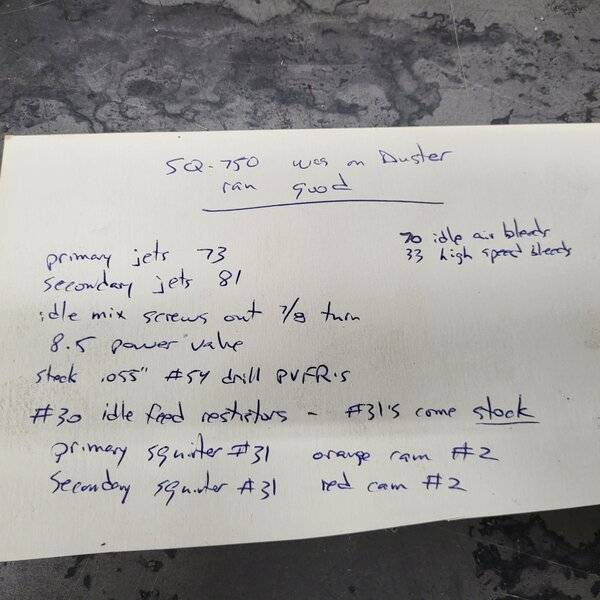 SQ-750 was on Duster
ran good
70 idle air bleeds
33 high speed bleeds
primary jets 73
secondary jets 81
idle mix screws out 7/8 turn
8.5 power valve
stock .055" #54 drill PVFR's
#30 idle feed restrictors - #31's come stock
primary squirter #31 orange cam #2
Secondary squirter #31 red cam #2